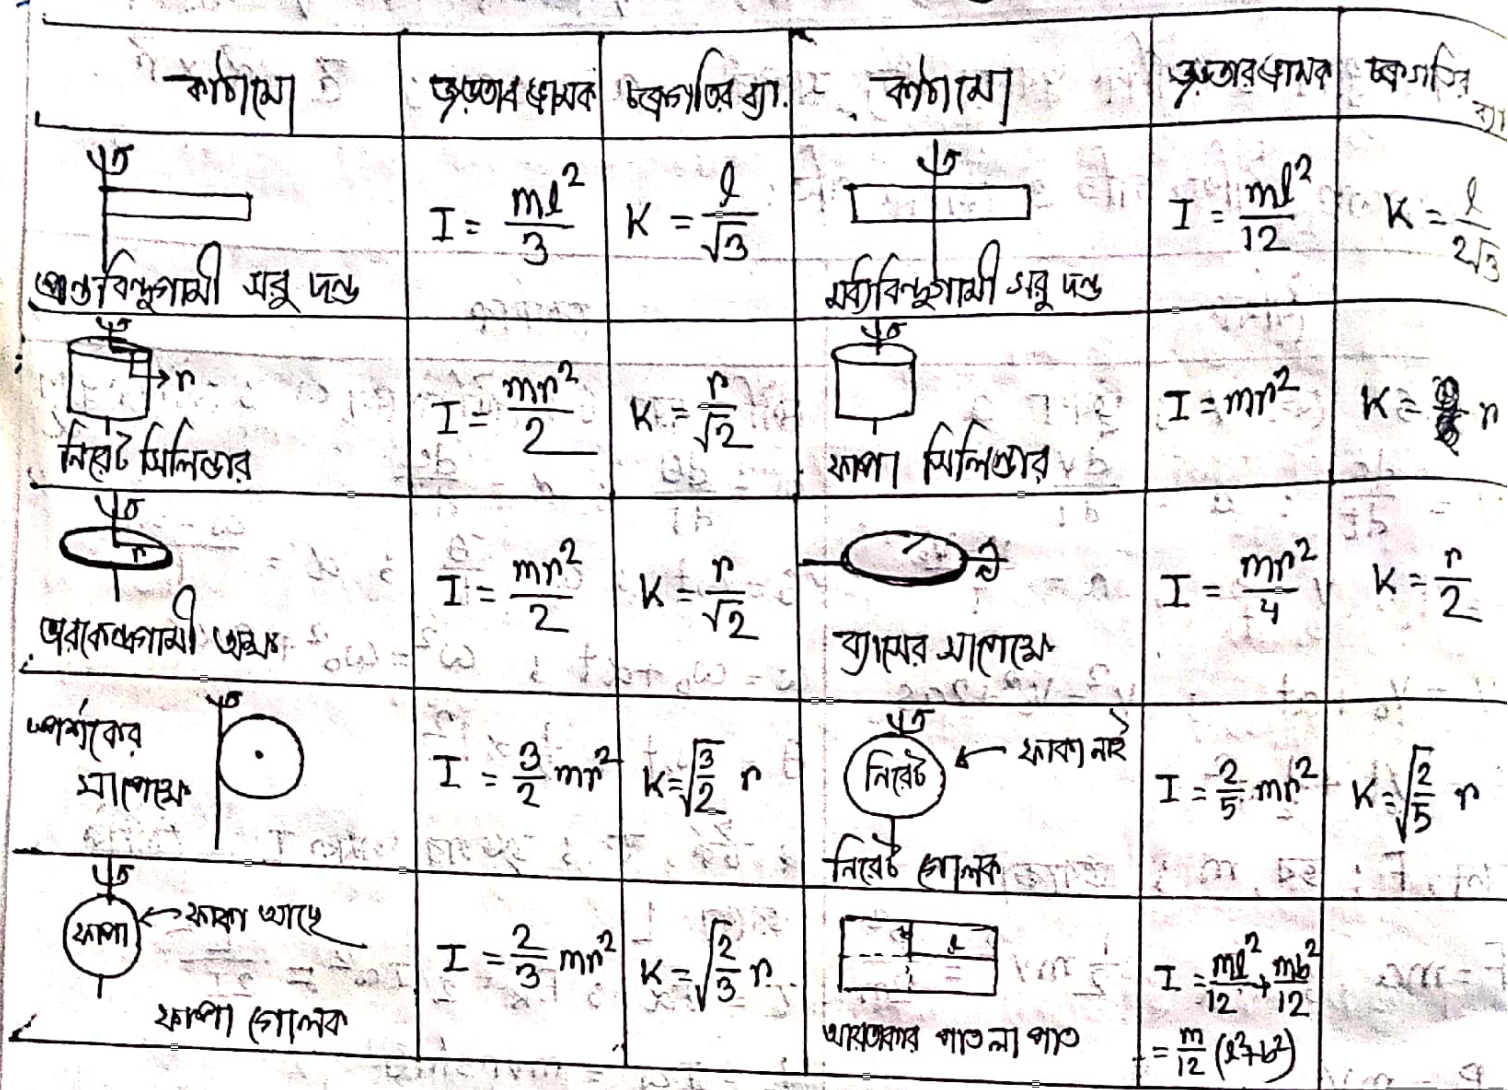 কাঠামো জড়তার ভ্রামক চক্রগতির ব্যা. কাঠামো জড়তার ভ্রামক চক্রগতির ব্যা
প্রান্তবিন্দুগামী সরু দন্ড I = ml²/3 K = l/√3
মধ্যবিন্দুগামী সরু দন্ড I = ml²/12 K = l/2√3
r
নিরেট সিলিন্ডার I = mr²/2 K = r/√2
ফাপা সিলিন্ডার I = mr² K = r
r
ভরকেন্দ্রগামী অক্ষ I = mr²/2 K = r/√2
ব্যাসের সাপেক্ষে I = mr²/4 K = r/2
স্পর্শকের
সাপেক্ষে I = 3/2 mr² K = √(3/2) r
নিরেট ← ফাকা নাই
নিরেট গোলক I = 2/5 mr² K = √(2/5) r
ফাপা ← ফাকা আছে
ফাপা গোলক I = 2/3 mr² K = √(2/3) r
l
আয়তাকার পাতলা পাত I = ml²/12 + mb²/12
= m/12 (l²+b²)